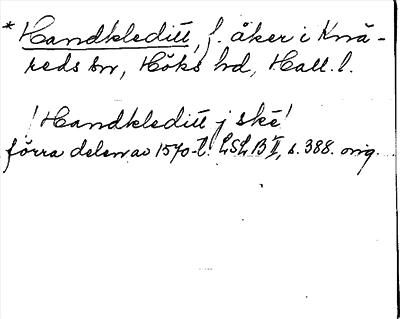 * Handkleditt, f. åker i Knä-
reds sn, Höks hd, Hall. l.
/Handkleditt j ske/
förra delen av 1570-t. LSLB II, s. 388. orig.